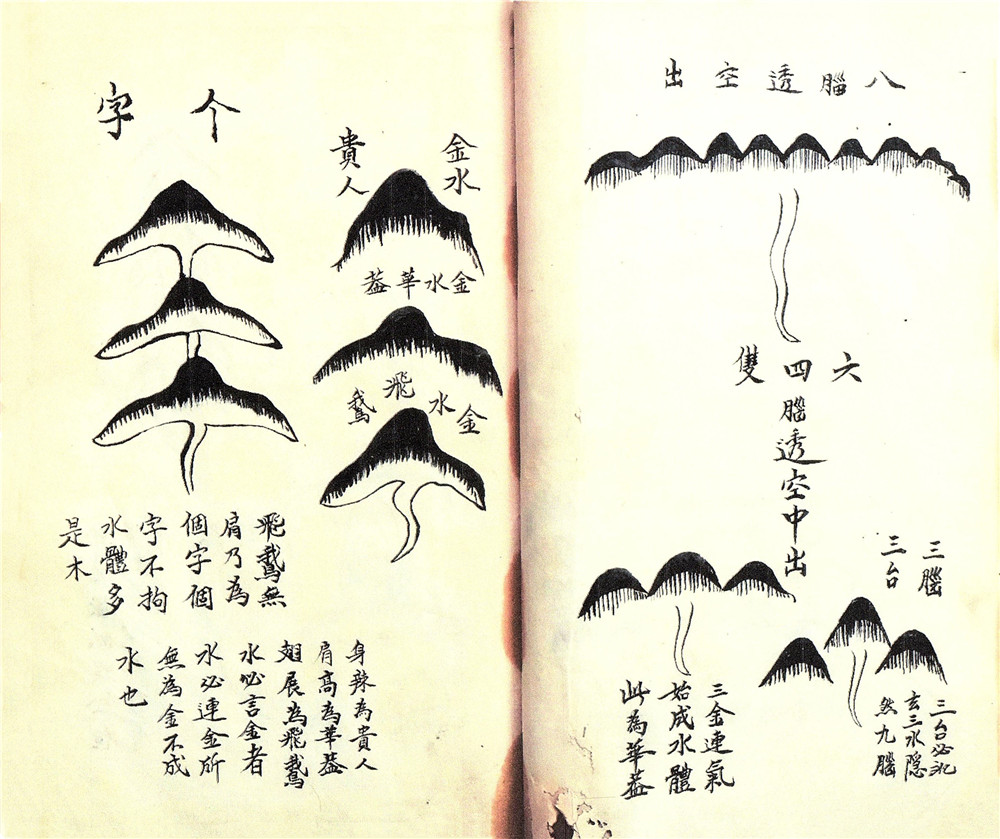 八腦透空出
六四雙
腦透空中出
三腦
三台
三台必
玄三水隱
然九腦
三金連氣
始成水體
此為華葢
金水
貴人
金水華葢
金水飛鵞
个字
飛鵞無
肩乃為
個字個
字不拘
水體多
是木
身辣為貴人
肩高為華葢
翅展為飛鵞
水必言金者
水必連金所
無為金不成
水也